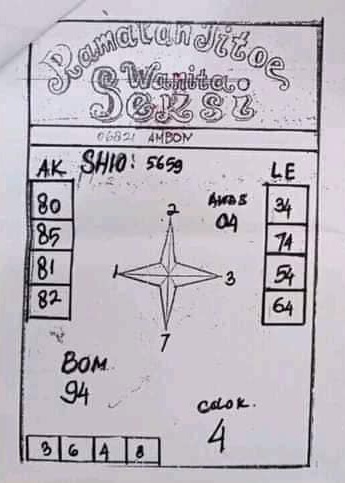 Ramalan Jitoe
Wanita.
Seksi
06821 AMBON
AK SHIO: 5659 LE
80
85
81
82
2
1 3
7
AWAS
04
34
74
54
64
BOM
94
COLOK.
4
3 6 4 8